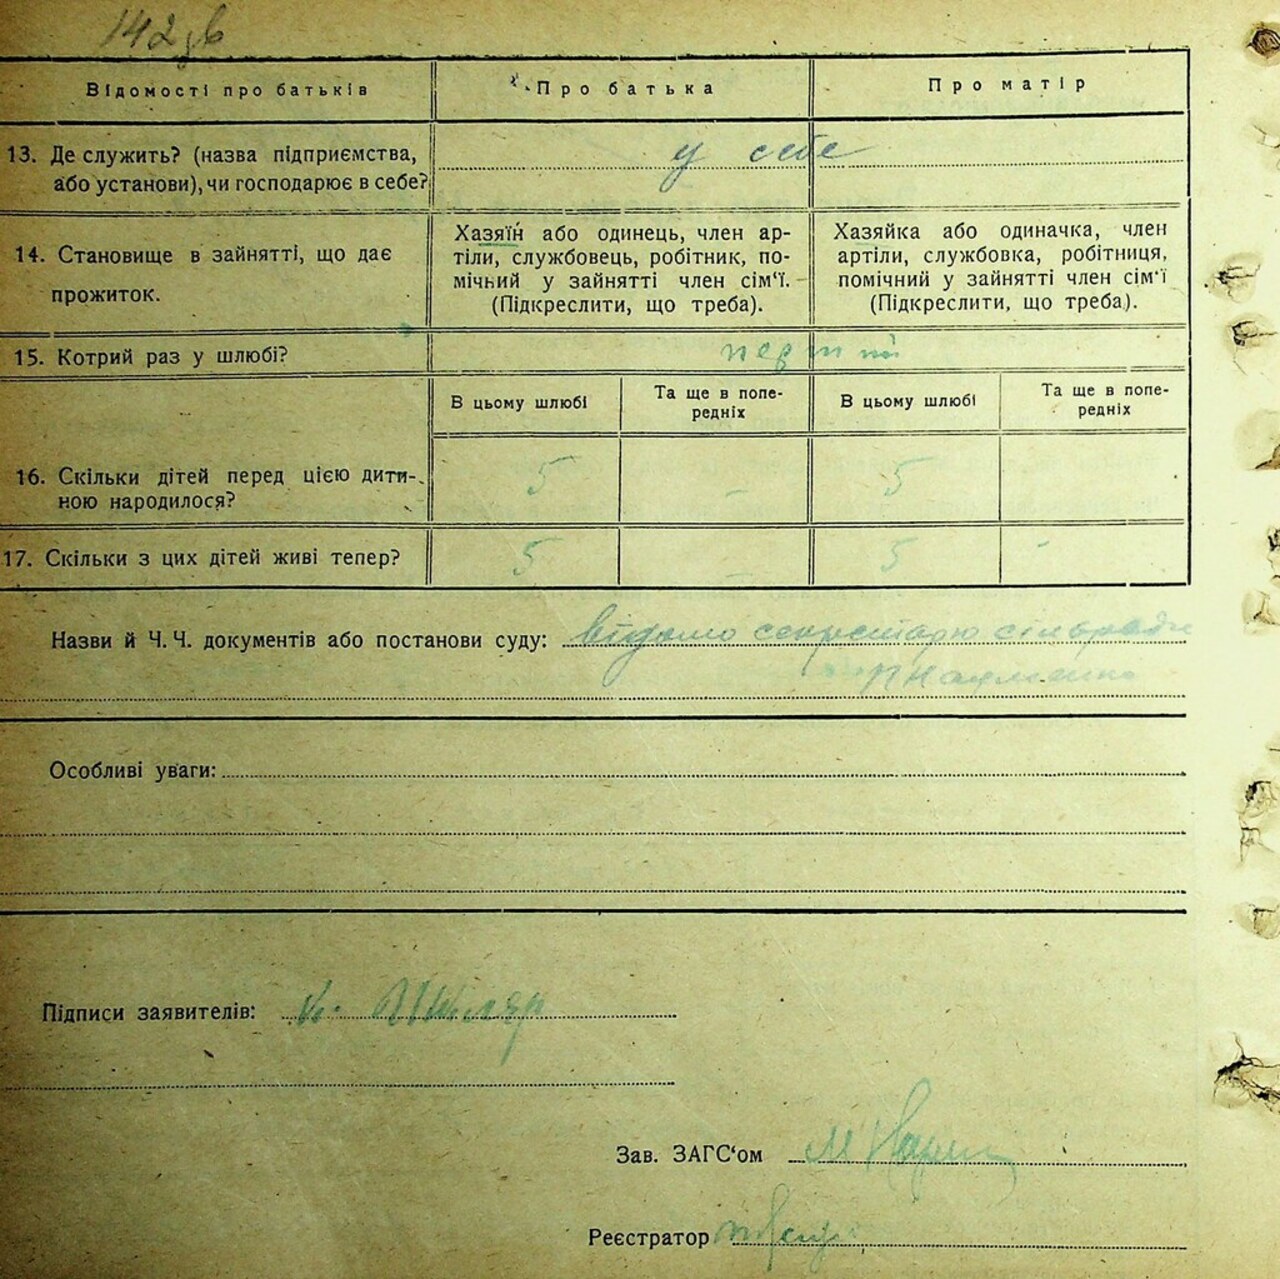 142 зв
Відомості про батьків
Про батька
Про матір
13. Де служить? (назва підприємства,
або установи), чи господарює в себе?
у себе
14. Становище в зайнятті, що дає
прожиток.
Хазяїн або одинець, член ар-
тілі, службовець, робітник, по-
мічний у зайнятті член сім'ї.
(Підкреслити, що треба).
Хазяйка або одиначка, член
артіли, службовка, робітниця,
помічний у зайнятті член сім'ї
(Підкреслити, що треба).
15. Котрий раз у шлюбі?
перший
В цьому шлюбі
Та ще в попе-
редніх
В цьому шлюбі
Та ще в попе-
редніх
16. Скільки дітей перед цією дити-
ною народилося?
5 - 5
17. Скільки з цих дітей живі тепер?
5 - 5 -
Назви й Ч. Ч. документів або постанови суду: відомо секретарю сільради
Науменко
Особливі уваги:
Підписи заявителів:
Зав. ЗАГС'ом
Реєстратор